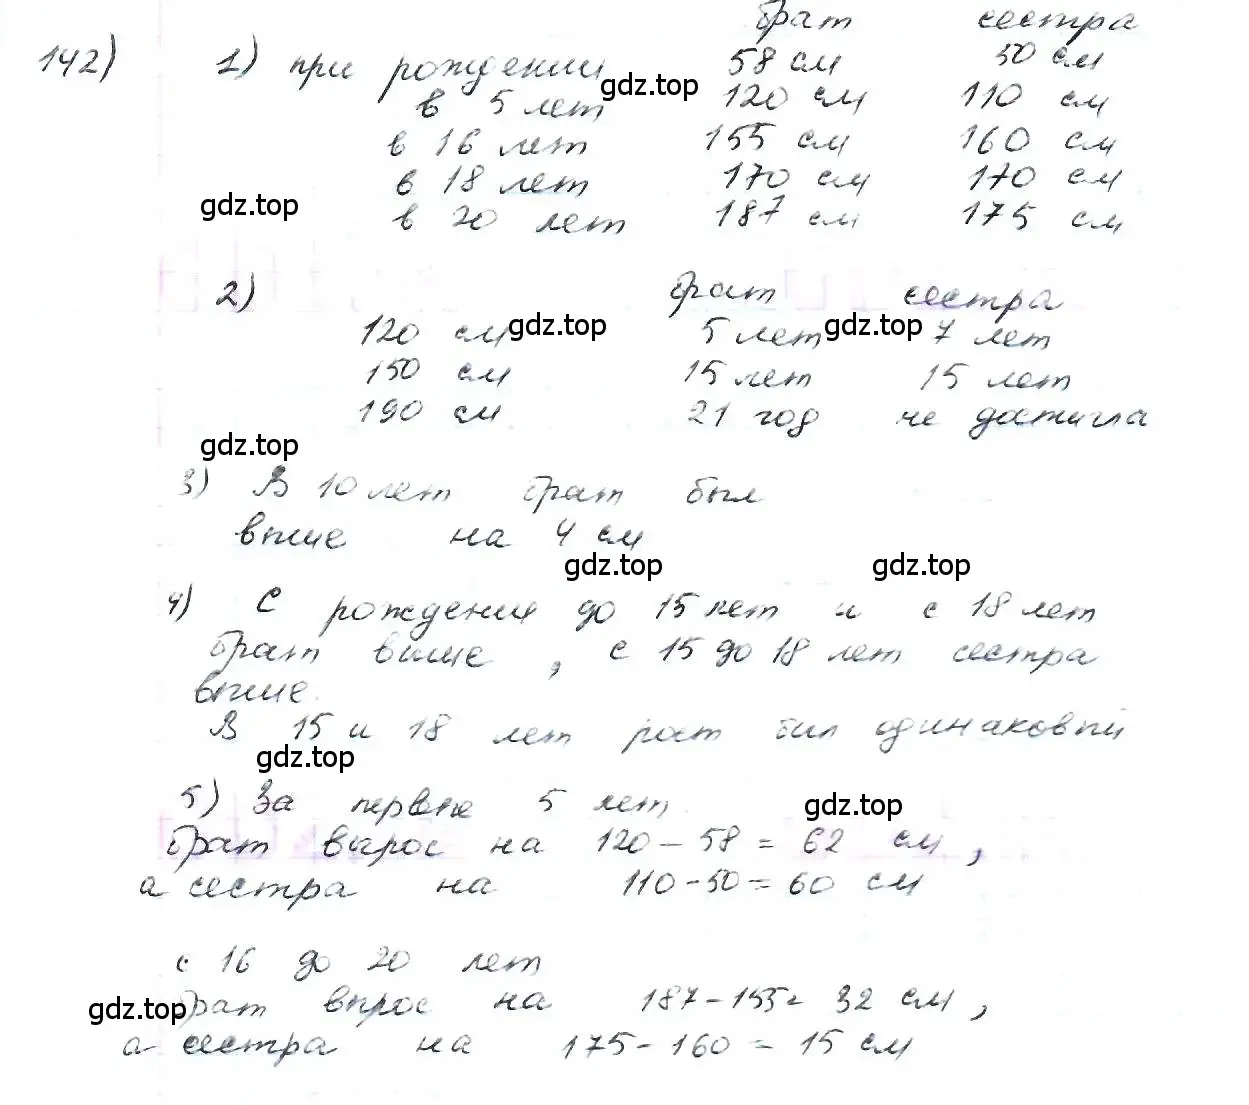 брат сестра
142) 1) при рождении 58 см 50 см
gdz.top
в 5 лет 120 см 110 см
в 16 лет 155 см 160 см
в 18 лет 170 см 170 см
gdz.top
в 20 лет 187 см 175 см
2) брат сестра
120 см gdz.top 5 лет gdz.top 7 лет
150 см 15 лет 15 лет
190 см 21 год не достигла
gdz.top
3) В 10 лет брат был
выше на 4 см
gdz.top gdz.top
4) С рождения до 15 лет и с 18 лет
брат выше, с 15 до 18 лет сестра
выше.
В 15 и 18 лет рост был одинаковый
gdz.top
5) За первые 5 лет
gdz.top
брат вырос на 120-58 = 62 см,
а сестра на 110-50 = 60 см
с 16 до 20 лет
gdz.top
брат вырос на 187-155= 32 см,
а сестра на 175-160 = 15 см